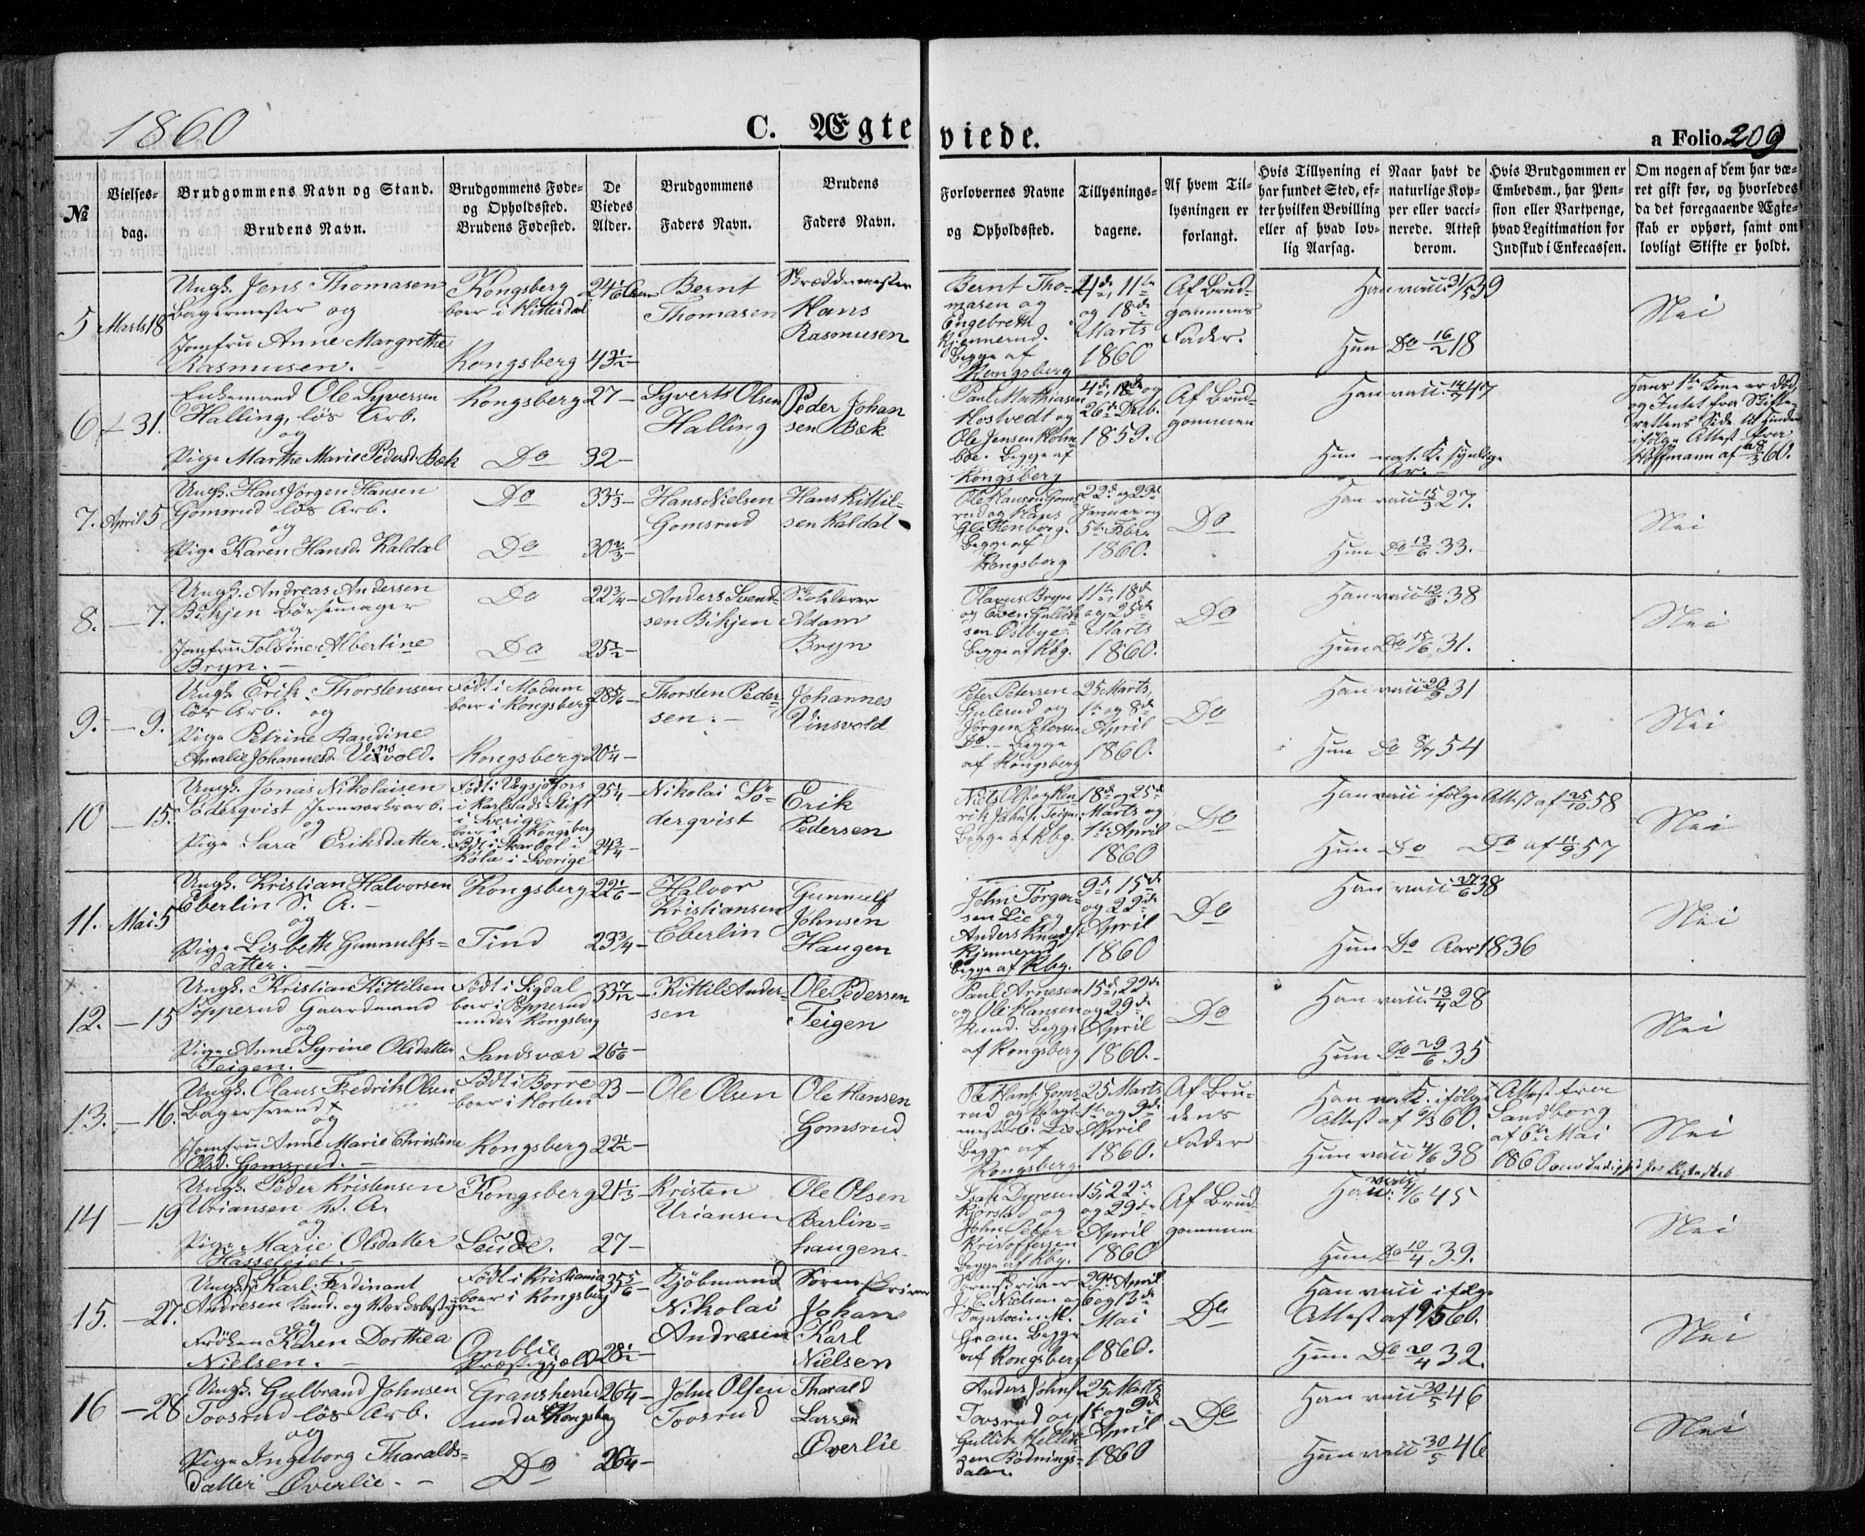 1860
C. Ægteviede.
a Folio 209
№
Vielses-
dag.
Brudgommens Navn og Stand.
Brudens Navn.
Brudgommens Føde-
og Opholdssted.
Brudens Fødested.
De
Viedes
Alder.
Brudgommens
Faders Navn.
Brudens
Faders Navn.
Forlovernes Navne
og Opholdssted.
Tillysnings-
dagene.
Af hvem Til-
lysningen er
forlangt.
Hvis Tillysning ei
har fundet Sted, ef-
ter hvilken Bevilling
eller af hvad lov-
lig Aarsag.
Naar havt de
naturlige Kop-
per eller vacci-
nerede. Attest
derom.
Hvis Brudgommen er
Embedsm., har Pen-
sion eller Vartpenge,
hvad Legitimation for
Indskud i Enkecassen.
Om nogen af dem har væ-
ret gift før, og hvorledes
da det foregaaende Ægte-
skab er ophørt, samt om
lovligt Skifte er holdt.
5
Marts 18
Ungk. Jens Thomasen
Bagermester og
Jomfru Anne Margrethe
Rasmusen.
Kongsberg
boer i Hitterdal
Kongsberg
24 1/6
43 1/2
Bernt
Thomasen
Skræddermester
Hans
Rasmusen
Bernt Tho-
masen og
Engebreth
Kjennerud.
Begge af
Kongsberg
4de, 11te
og 18de
Marts
1860
Af Brud-
gommens
Fader.
Han vacc. 31/5 39
Hun Do 16/2 18
Nei
6
31.
Enkemand Ole Syversen
Halling, løs Arb.
og
Pige Marthe Marie Pedersd. Bæk
Kongsberg
Do
27
32
Syvert Olsen
Halling
Peder Johan
sen Bæk
Paul Mathiasen
Hostvedt og
Ole Jensen Holm-
boe. Begge af
Kongsberg
4de, 18de og
26de Febr.
1859.
Af Brud-
gommen
Han vacc. 14/7 47
Hun nat. K. synlige
Ar.
Hans 1ste Kone er død,
og Intet fra Skifte-
rettens Side til Hinder
ifølge Attest fra
Hoffmann af 60.
7.
April 5
Ungk. Hans Jørgen Hansen
Gomsrud løs Arb.
og
Pige Karen Hansd. Kaldal
Do
Do
33 1/3
30 2/3
Hans Nielsen
Gomsrud
Hans Kittil-
sen Kaldal
Ole Hansen Goms
rud og Hans
Begge af
Kongsberg
22de og 29de
Januar og
5te Febr.
1860.
Do
Han vacc. 15/5 27.
Hun Do 13/6 33.
Nei
8.
7.
Ungk. Andreas Andersen
Bikjen Børsemager
og
Jomfru Tolvine Albertine
Bryn.
Do
Do
22 3/4
25 1/2
Anders Svend-
sen Bikjen
Skolelærer
Adam
Bryn
Olavus Bryn
og Even
sen Østbye.
Begge af Kbg.
11te, 18de
og 25de
Marts
1860.
Do
Han vacc. 12/6 38
Hun Do 15/6 31.
Nei
9.
9.
Ungk. Erik Thorstensen
løs Arb. og
Pige Petrine Randine
Amalie Johannesd. Vinsvold.
Født i Modum
boer i Kongsberg
Kongsberg
28 5/6
20 1/4
Thorsten Peder-
sen.
Johannes
Vinsvold
Peter Petersen
Gulerud og
Jørgen Petersen
Do. Begge
af Kongsberg
25 Marts,
1te og 8de
April
1860.
Do
Han vacc. 20/9 31
Hun Do 8/7 54
Nei
10
15.
Ungk. Jonas Nikolaisen
Søderqvist Jernverksarb.
og
Pige Sara Eriksdatter.
Født i Vegsjøfors
i Karlstads Stift
i Sverige.
boer i Kongsberg
Født i
Køla i Sverige
25 1/4
24 3/4
Nikolai Sø-
derqvist
Erik
Pedersen
Begge af Kbg.
18de og 25de
Marts og
1te April
1860
Do
Han vacc ifølge Attest af 25/10 58
Hun Do Do af 11/9 57
Nei
11.
Mai 5
Ungk. Kristian Halvorsen
Eberlin S. A.
og
Pige Lisbeth Gunnulfs-
datter.
Kongsberg
Tind
22 1/6
23 3/4
Halvor
Kristiansen
Eberlin
Gunnulf
Johnsen
Haugen
John Torger-
sen Lie og
Anders Knuds.
Kjennerud
Begge af Kbg.
9de, 15de
og 22de
April
1860
Do
Han vacc 27/6 38
Hun Do Aar 1836
Nei
12.
15
Ungk. Kristian Kittilsen
Popperud Gaardmand
og
Pige Anne Syrine Olsdatter
Teigen.
Født i Sigdal
boer i Popperud
under Kongsberg
Sandsvær
33 7/12
26 1/6
Kittil Ander-
sen
Ole Pedersen
Teigen
Paul Arnesen
og Ole Hansen
Begge
af Kongsberg
15de, 22de
og 29de
April
1860.
Do
Han vacc. 13/4 28
Hun Do 29/6 35
Nei
13.
16.
Ungk. Olaus Fredrik Olsen
Bagersvend
og
Jomfru Anne Marie Christine
Olsd. Gomsrud.
Født i Borre
boer i Horten
Kongsberg
23
22 1/2
Ole Olsen
Ole Hansen
Gomsrud
Ole Hans. Goms-
rud og
mester C. Lie
Begge af
Kongsberg.
25 Marts
1te og 9de
April
1860.
Af Bru-
dens
Fader
Han n. K. ifølge
Attest af 60.
Hun vacc 4/6 38
Attest fra
Sandborg
af 6te Mai
1860
Nei
14
19
Ungk. Peder Kristensen
Uriansen V. A.
og
Pige Marie Olsdatter
Hasseleiet.
Kongsberg
Seude.
21 1/3
27
Kristen
Uriansen
Ole Olsen
Barlin-
haugens
Isak Dyresen
Kjørstad og
John Peter
Kristoffersen
Begge af Kbg.
15, 22de
og 29de
April
1860
Af Brud
gommen
Han vacc. 4/6 45
Hun Do 10/4 39.
Nei
15.
27.
Ungk. Karl Ferdinant
Andresen Cand. og Værksbestyrer
og
Frøken Karen Dorthea
Nielsen.
Født i Kristiania
boer i Kongsberg
Omblie
Præstegjæld
35 5/6
28 1/2
Kjøbmand
Nikolai
Andresen
Sorenskriver
Johan
Karl
Nielsen
Sorenskriver
J. C. Nielsen og
Fagotvein M.
Gran. Begge
af Kongsberg
29de April
6 og 13de
Mai
1860.
Do
Han vacc ifølge
Attest af 9/5 60.
Hun Do 20/4 32.
Nei
16
28
Ungk. Gulbrand Johnsen
Toosrud løs Arb.
og
Pige Ingeborg Tharalds-
datter Øverlie.
Gransherred
under Kongsberg
Do
26 1/4
26 1/4
John Olsen
Toosrud
Tharald
Larsen
Øverlie
Anders Johns.
Toosrud og
Gullik
sen Rødnings-
dalen.
25 Marts
1te og 9de
April
1860
Do
Han vacc 30/5 46
Hun vacc 30/5 46
Nei